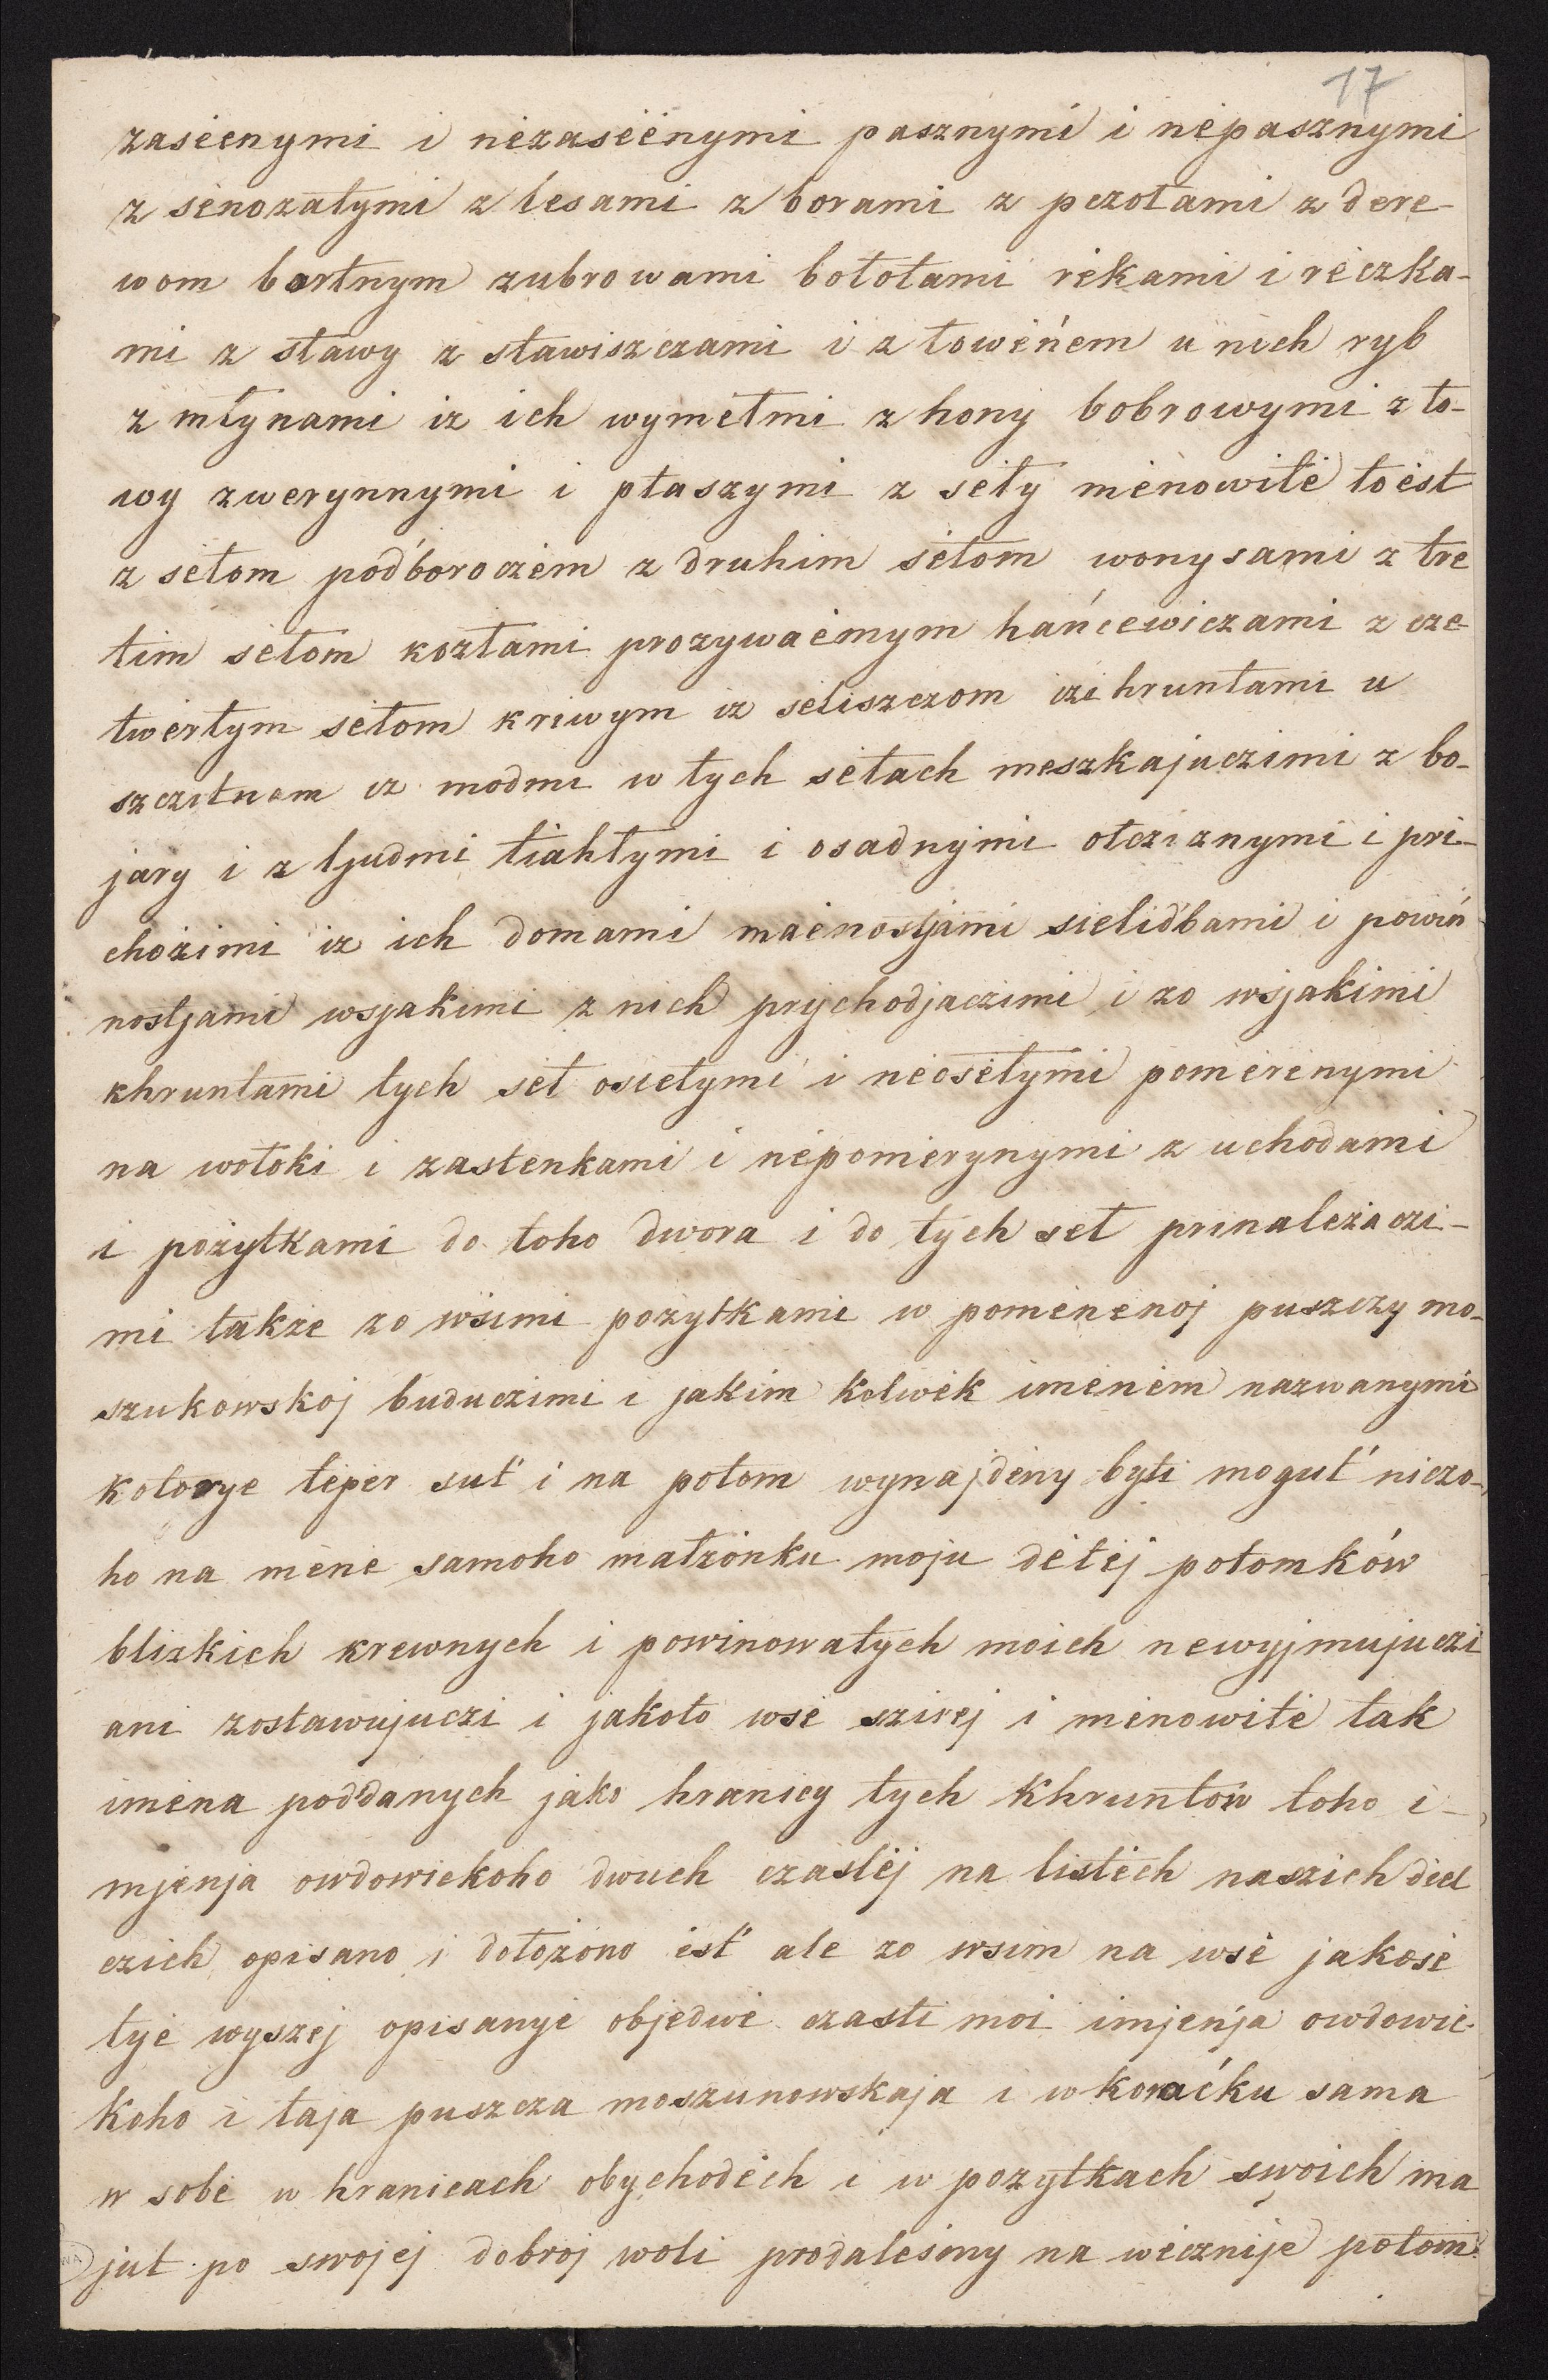 17
zasiėnymi i nėzasiėnymi pasznymi i nėpasznymi
z sėnożatymi z lesami z borami z pczołami z dere-
wom bortnym zubrowami bołotami rėkami i rėczka-
mi z stawy z stawiszczami i z łowėńem u nich ryb
z młynami iz ich wymełmi z hony bobrowymi z ło-
wy zwerynnymi i ptaszymi z seły mėnowitė to ėst
z sełom pod'boroczėm z druhim sėłom wonysami z tre
tim sėłom kozłami prozywaėmym hańcewiczami z cze-
twėrtym sėłom kriwym iz sėliszczom izihruntami u
szczitnom iz modmi w tych sėłach meszkajuczimi z bo-
jary i z ljudmi tiahłymi i osadnymi otcziznymi i pri-
chożimi iz ich domami maėnostjami sielid'bami i powiń
nostjami wsjakimi z nich prychodjaczimi i zo wsjakimi
khruntami tych sėł osiełymi i nėosėłymi pomėrėnymi
na wołoki i zastenkami i nėpomėrynymi z uchodami
i pożytkami do toho dwora i do tych seł prinalėżaczi-
mi takżė zo wsimi pożytkami w pomėnėnoj puszczy mo-
szukowskoj buduczimi i jakim kolwėk imėnėm nazwanymi
kotorye tėpėr sut' i na potom wynajdėny byti mogut' niczo-
ho na mėnė samoho małżonku moju dėtėj potomków
blizkich krewnych i powinowatych moich newyjmujuczi
ani zostawujuczi i jakoto wsė szirėj i mėnowitė tak
imėna pod'danych jako hranicy tych khruntow toho i-
mjenja owdowiekoho dwuch czastėj na listėch naszich diel
czich opisano i dołożono ėst' ale zo wsim na wsė jakosė
tyė wyszėj opisanyė objėdwė czasti moi imjenja owdowie-
koho i taja puszcza moszunowskaja i w kowaćku sama
w sobė w hranicach obychodėch i w pożytkach swoich ma
jut po swojej dobroj woli prodalėsmy na wėcznijė potom